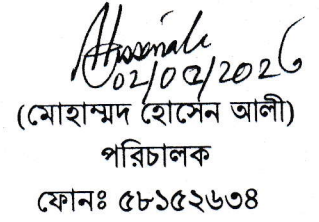 02/02/2026
(মোহাম্মদ হোসেন আলী)
পরিচালক
ফোনঃ ৫৮১৫২৬৩৪